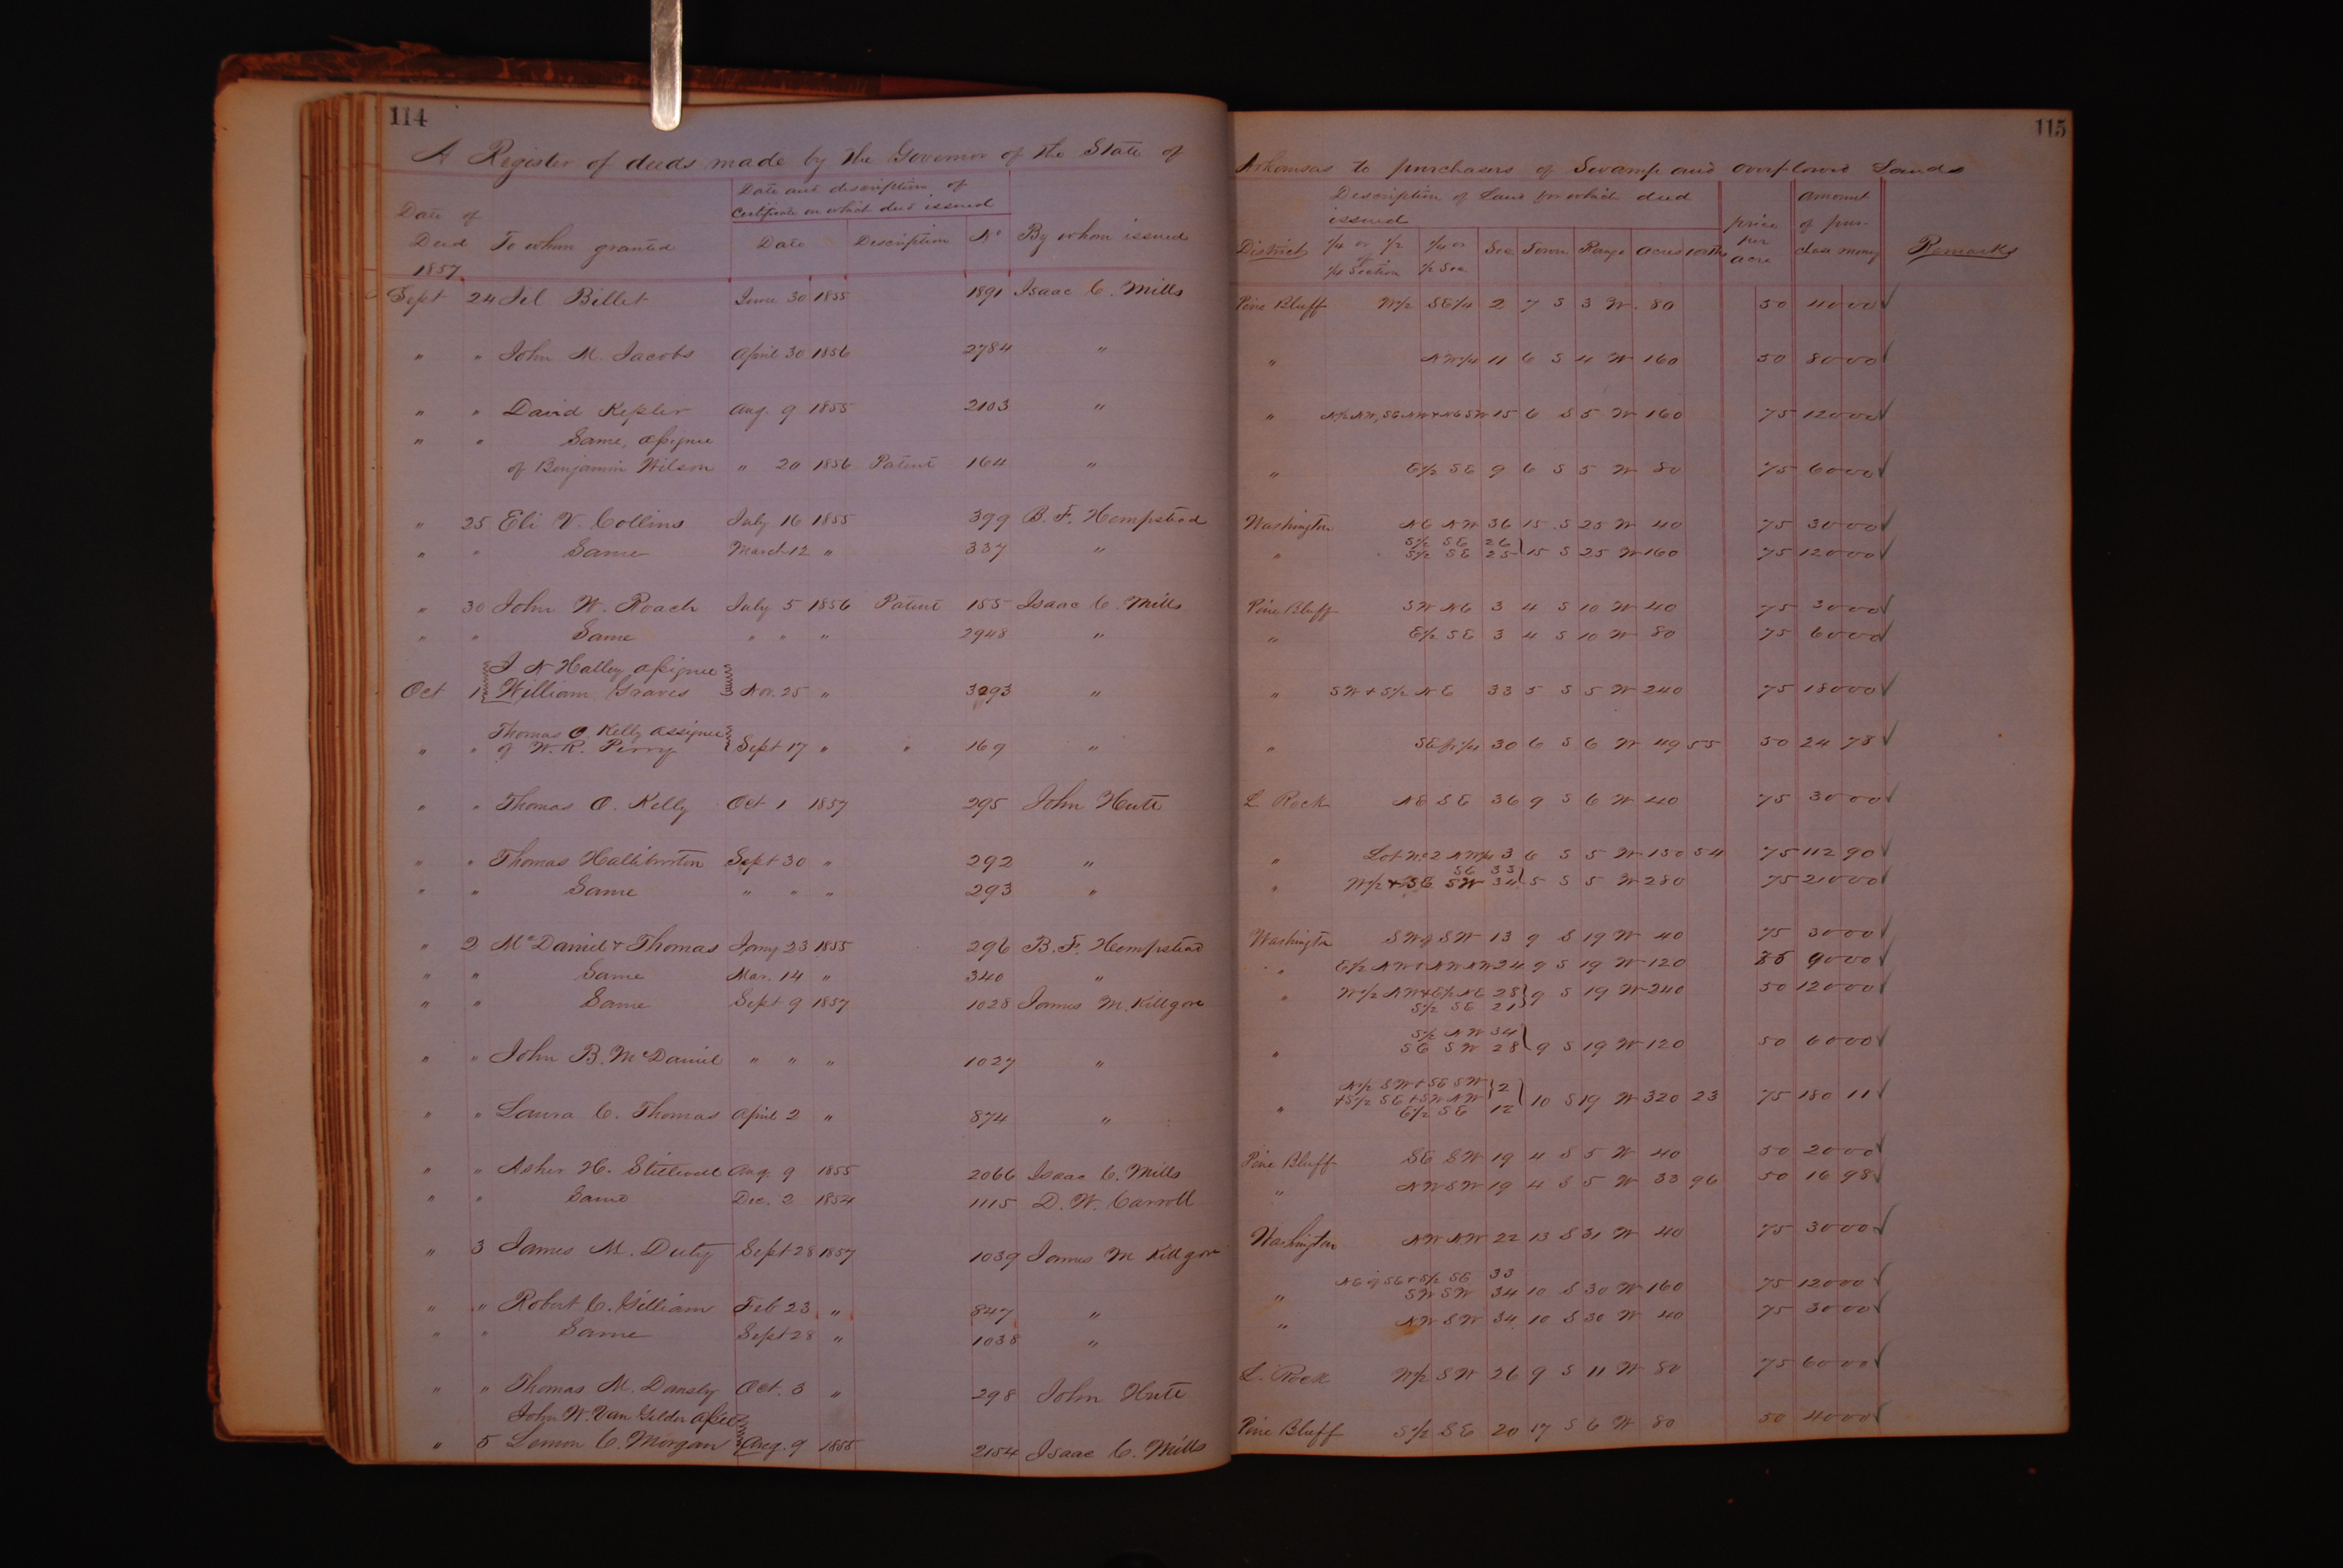 114
A Register of deeds made by the Governor of the State of
Date and description of
Certificate on which deed issued
Date of
Deed To whom granted Date Description No By whom issued
1857
Sept 24 Jil Billet June 30 1855 1891 Isaac C. Mills
" " John M. Jacobs April 30 1856 2784 "
" " David Kepler Aug. 9 1855 2103 "
" " Same, assignee
of Benjamin Wilson " 20 1856 Patent 164 "
" 25 Eli V. Collins July 16 1855 399 B. F. Hempstead
" " Same March 12 " 337 "
" 30 John W. Roach July 5 1856 Patent 155 Isaac C. Mills
" " Same " " " 2948 "
J. N Halley assignee
Oct 1 William Graves Nov. 25 " 3293 "
Thomas O. Kelly assignee
" " of W. R. Perry Sept 17 " " 169 "
" " Thomas O. Kelly Oct 1 1857 295 John Hute
" " Thomas Halliburton Sept 30 " 292 "
" " Same " " " 293 "
" 2 McDaniel & Thomas Jany 23 1855 296 B. F. Hempstead
" " Same Mar. 14 " 340 "
" " Same Sept 9 1857 1028 James M. Killgore
" " John B. McDaniel " " " 1027 "
" " Laura C. Thomas April 2 " 874 "
" " Asher H. Stillwell Aug 9 1855 2066 Isaac C. Mills
" " Same Dec. 2 1854 1115 D. W. Carroll
" 3 James M. Duty Sept 28 1857 1039 James M Killgore
" " Robert C. Gilliam Feb 23 " 847 "
" " Same Sept 28 " 1038 "
" " Thomas M. Dansly Oct. 3 " 298 John Hute
John W. Van Gelder assee
" 5 Lemon C. Morgan Aug. 9 1855 2154 Isaac C. Mills
115
Arkansas to purchasers of Swamp and overflowed Lands
Description of Land for which deed
issued
District 1/4 or 1/2 of 1/4 Section 1/4 or 1/2 Sec Sec Town Range Acres 100ths price per acre amount of purchase money Remarks
Pine Bluff W1/2 SE1/4 2 7 S 3 W. 80 50 40 00 ✓
" NW1/4 11 6 S 4 W 160 50 80 00 ✓
" N1/2 NW, SE NW & NE SW 15 6 S 5 W 160 75 120 00 ✓
" E1/2 SE 9 6 S 5 W 80 75 60 00 ✓
Washington NE NW 36 15 S 25 W 40 75 30 00 ✓
S1/2 SE 26
" S1/2 SE 25 } 15 S 25 W 160 75 120 00 ✓
Pine Bluff SW NE 3 4 S 10 W 40 75 30 00 ✓
" E1/2 SE 3 4 S 10 W 80 75 60 00 ✓
" SW & S1/2 NE 33 5 S 5 W 240 75 180 00 ✓
" SE fr 1/4 30 6 S 6 W 49 55 50 24 78 ✓
L. Rock NE SE 36 9 S 6 W 40 75 30 00 ✓
" Lot No 2 NW1/4 3 6 S 5 W 150 54 75 112 90 ✓
SE 33
" W1/2 & SE SW 34 } 5 S 5 W 280 75 210 00 ✓
Washington SW of SW 13 9 S 19 W 40 75 30 00 ✓
" E1/2 NW & NW NW 24 9 S 19 W 120 75 90 00 ✓
" W1/2 NW & E1/2 NE 28 } 9 S 19 W 240 50 120 00 ✓
S1/2 SE 21
S1/2 NW 34
" SE SW 28 } 9 S 19 W 120 50 60 00 ✓
N1/2 SW & SE SW } 2
" & S1/2 SE & SW NW } 10 S 19 W 320 23 75 180 11 ✓
E1/2 SE 12
Pine Bluff SE SW 19 4 S 5 W 40 50 20 00 ✓
" NW SW 19 4 S 5 W 33 96 50 16 98 ✓
Washington NW NW 22 13 S 31 W 40 75 30 00 ✓
NE of SE & S1/2 SE 33
" SW SW 34 10 S 30 W 160 75 120 00 ✓
" NW SW 34 10 S 30 W 40 75 30 00 ✓
L. Rock W1/2 SW 26 9 S 11 W 80 75 60 00 ✓
Pine Bluff S1/2 SE 20 17 S 6 W 80 50 40 00 ✓